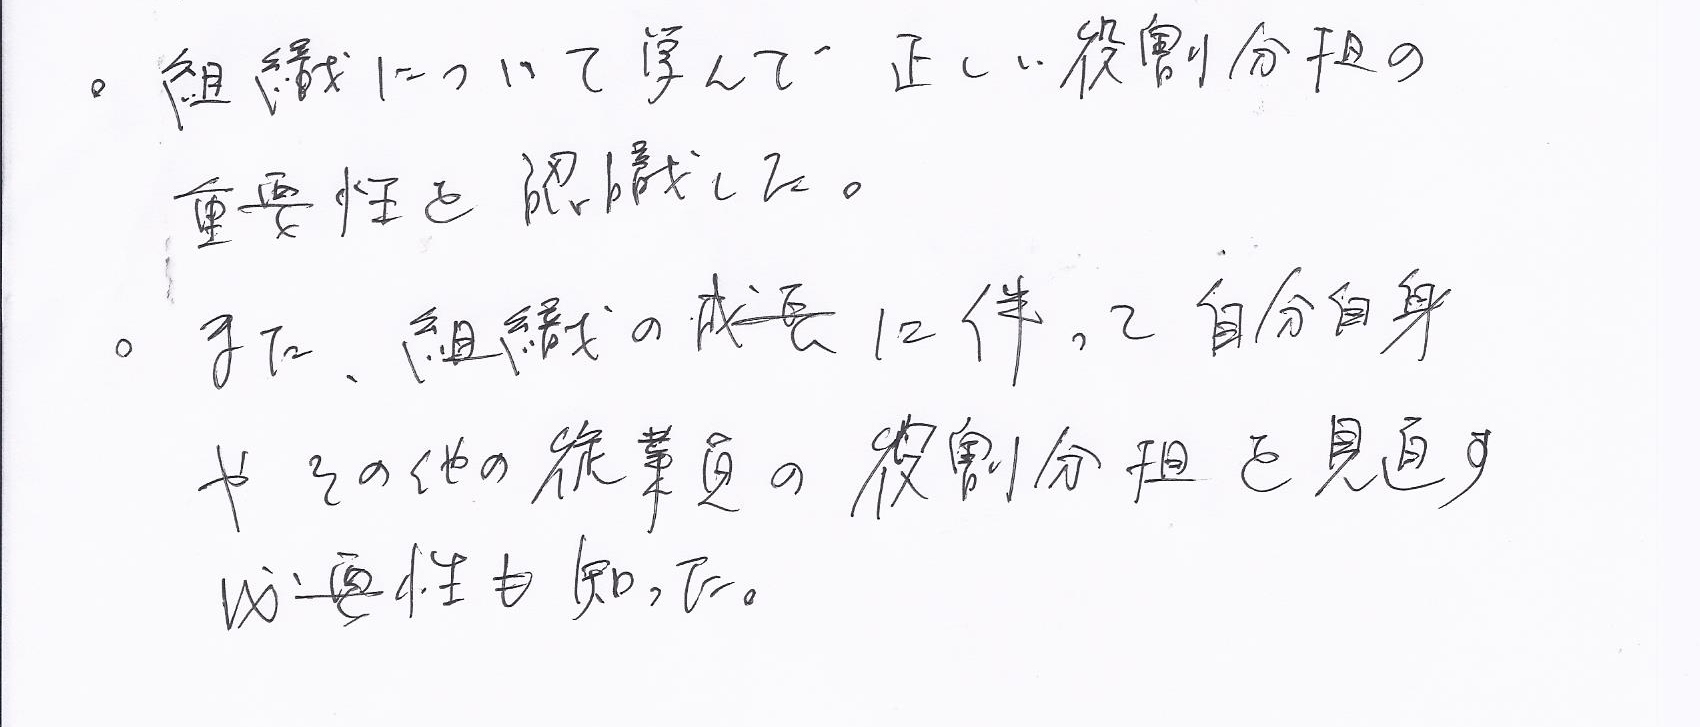 。組織について学んで 正しい役割分担の
重要性を認識した。
。また、組織の成長に伴って自分自身
やその他の従業員の役割分担を見直す
必要性も知った。